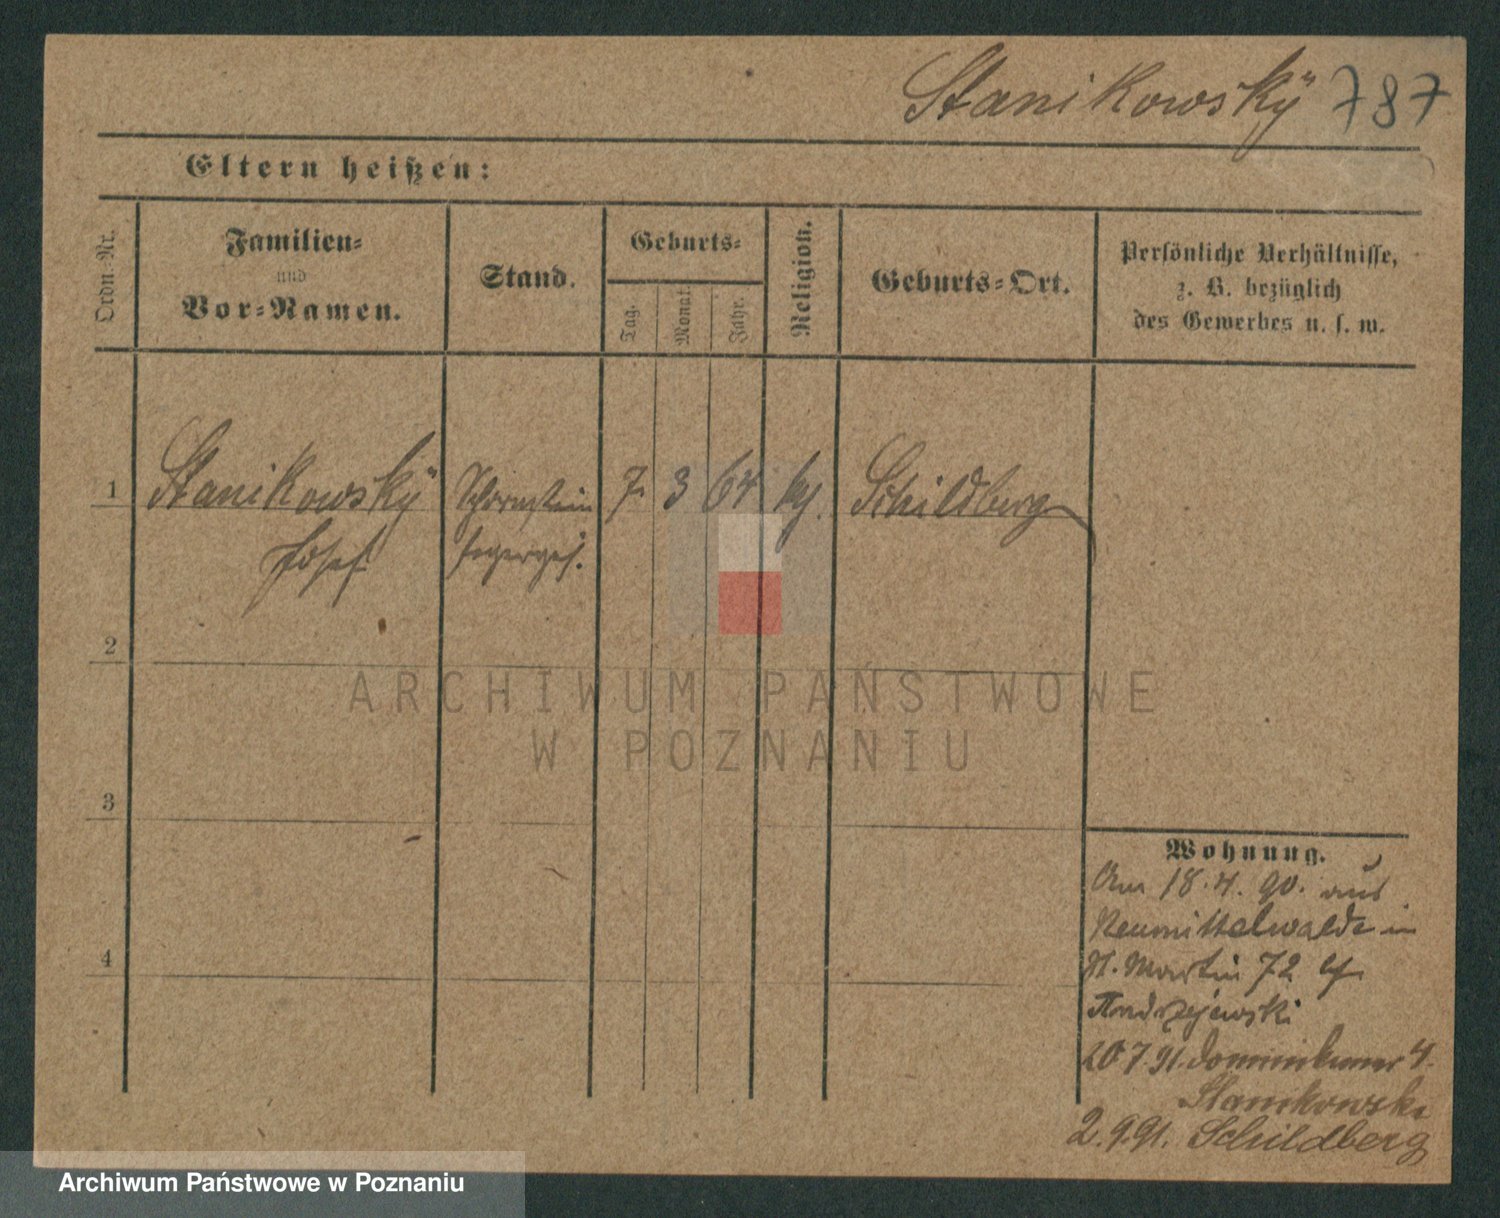 Stanikowsky 787
Eltern heißen:
Ordn.-Nr.
Familien-
und
Vor-Namen.
Stand.
Geburts-
Tag.
Monat.
Jahr.
Religion.
Geburts-Ort.
Persönliche Verhältnisse,
z. B. bezüglich
des Gewerbes u. s. w.
1 Stanikowsky Schornstein 7. 3 64 kth. Schildberg
Josef fegerges.
2
3
4
ARCHIWUM PAŃSTWOWE
W POZNANIU
Wohnung.
Am 18.4.90. aus
Neumittelwalde in
St. Martin 72
Andrzejewski
20.7.91. Dominikaner 4.
Stanikowski
2.9.91. Schildberg
Archiwum Państwowe w Poznaniu